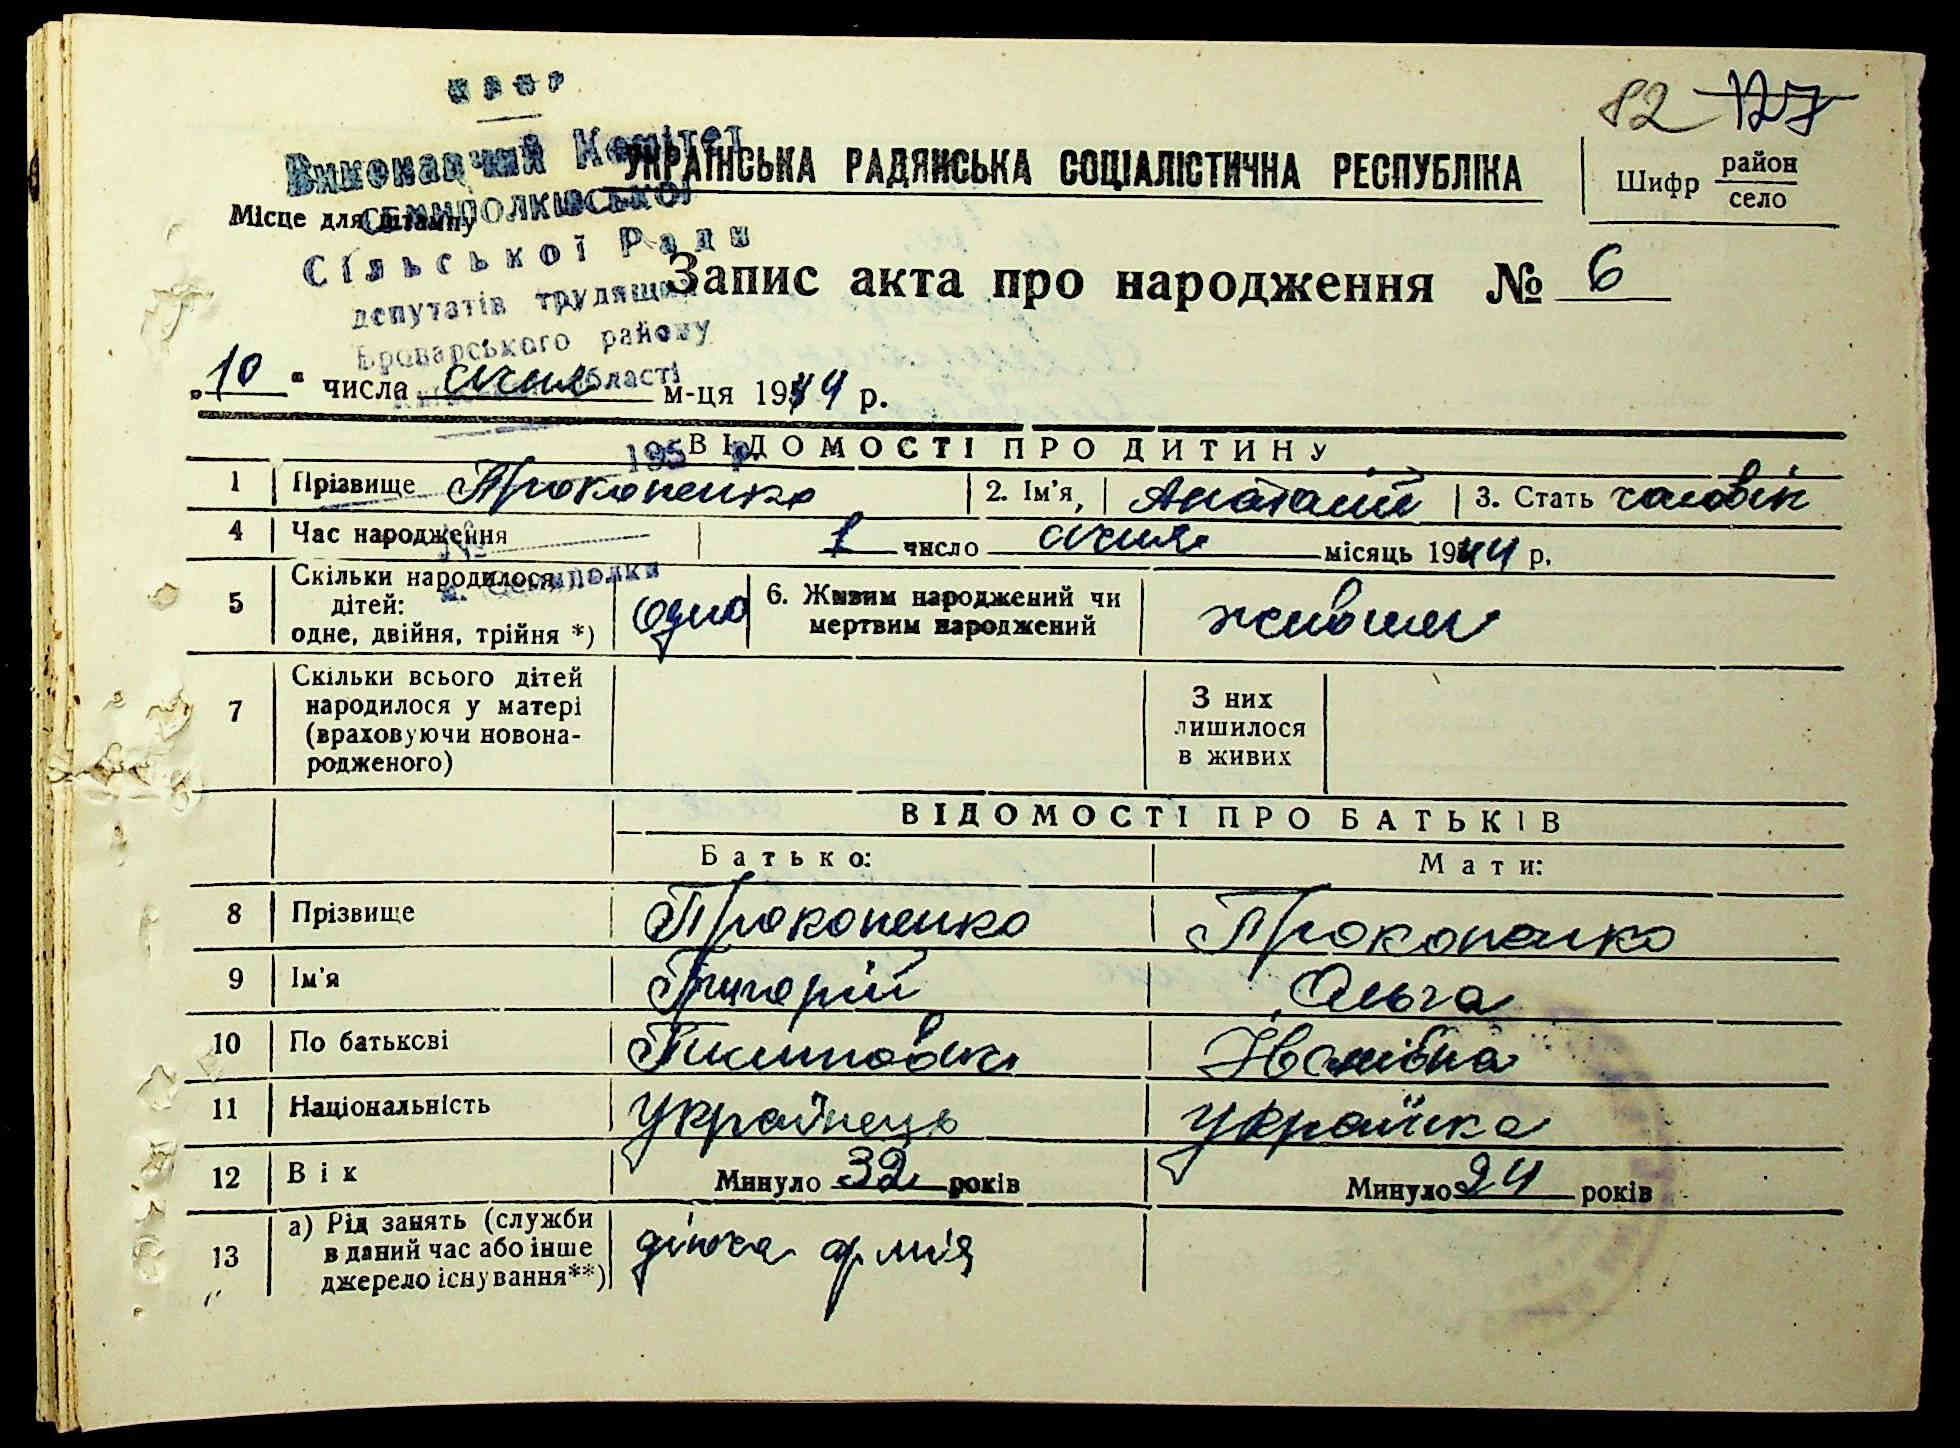 УРСР
82 127
Виконавчий Комітет
УКРАЇНСЬКА РАДЯНСЬКА СОЦІАЛІСТИЧНА РЕСПУБЛІКА
Шифр район село
Місце для штампу
СЕМИПОЛКІВСЬКОЇ
Сільської Ради
Запис акта про народження № 6
депутатів трудящих
Броварського району
Київської області
„10“ числа січня м-ця 1944 р.
195 р.
ВІДОМОСТІ ПРО ДИТИНУ
1 Прізвище Прокопенко 2. Ім'я, Анатолій 3. Стать чоловік
4 Час народження 1 число січня місяць 1944 р.
№
с. Семиполки
5 Скільки народилося дітей: одне, двійня, трійня *) одно 6. Живим народжений чи мертвим народжений живим
7 Скільки всього дітей народилося у матері (враховуючи новона-родженого) З них лишилося в живих
ВІДОМОСТІ ПРО БАТЬКІВ
Батько: Мати:
8 Прізвище Прокопенко Прокопенко
9 Ім'я Григорій Ольга
10 По батькові Пилипович Іванівна
11 Національність Українець Українка
12 Вік Минуло 32 років Минуло 24 років
13 а) Рід занять (служби в даний час або інше джерело існування**) діюча армія